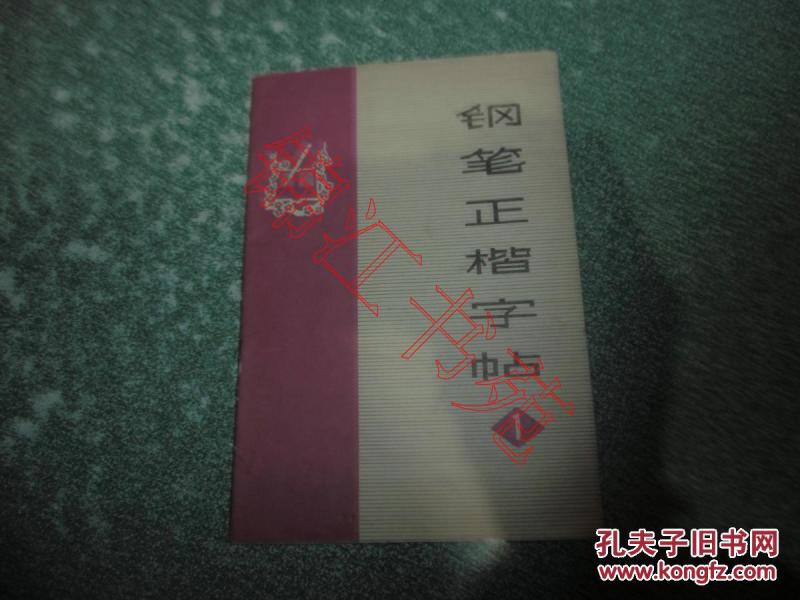 钢笔正楷字帖
1
江书苑
孔夫子旧书网
www.kongfz.com